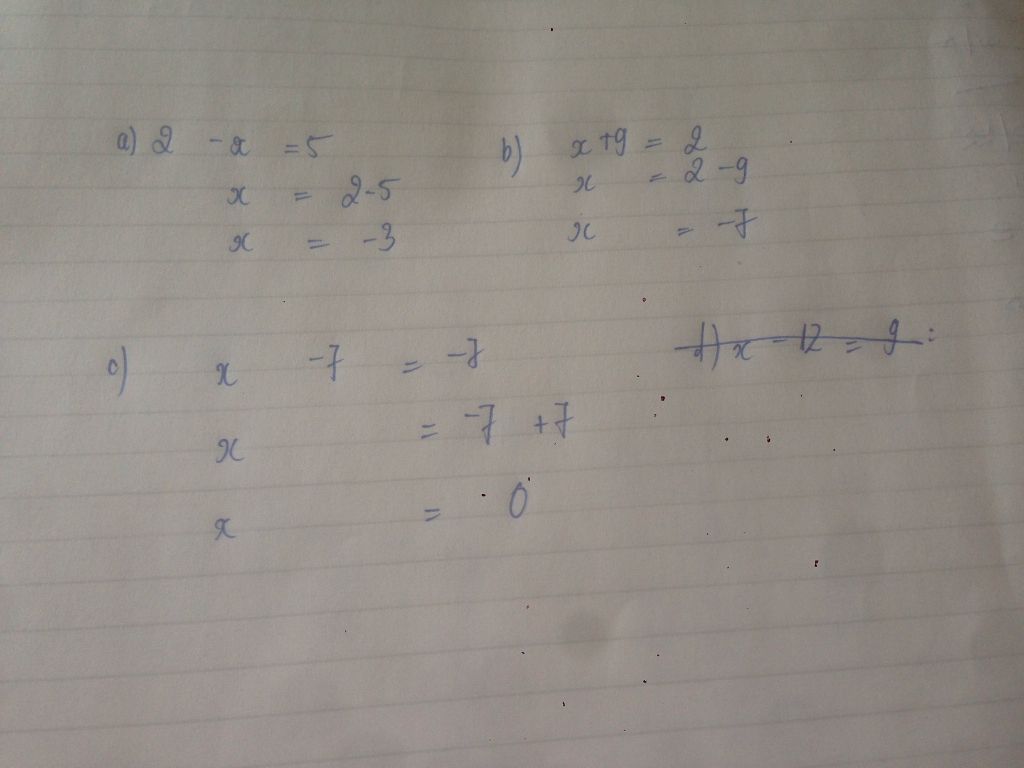 a) 2 - x = 5
x = 2-5
x = -3
b) x +9 = 2
x = 2 -9
x = -7
c) x -7 = -7
x = -7 +7
x = 0
d) x - 12 = 9 :